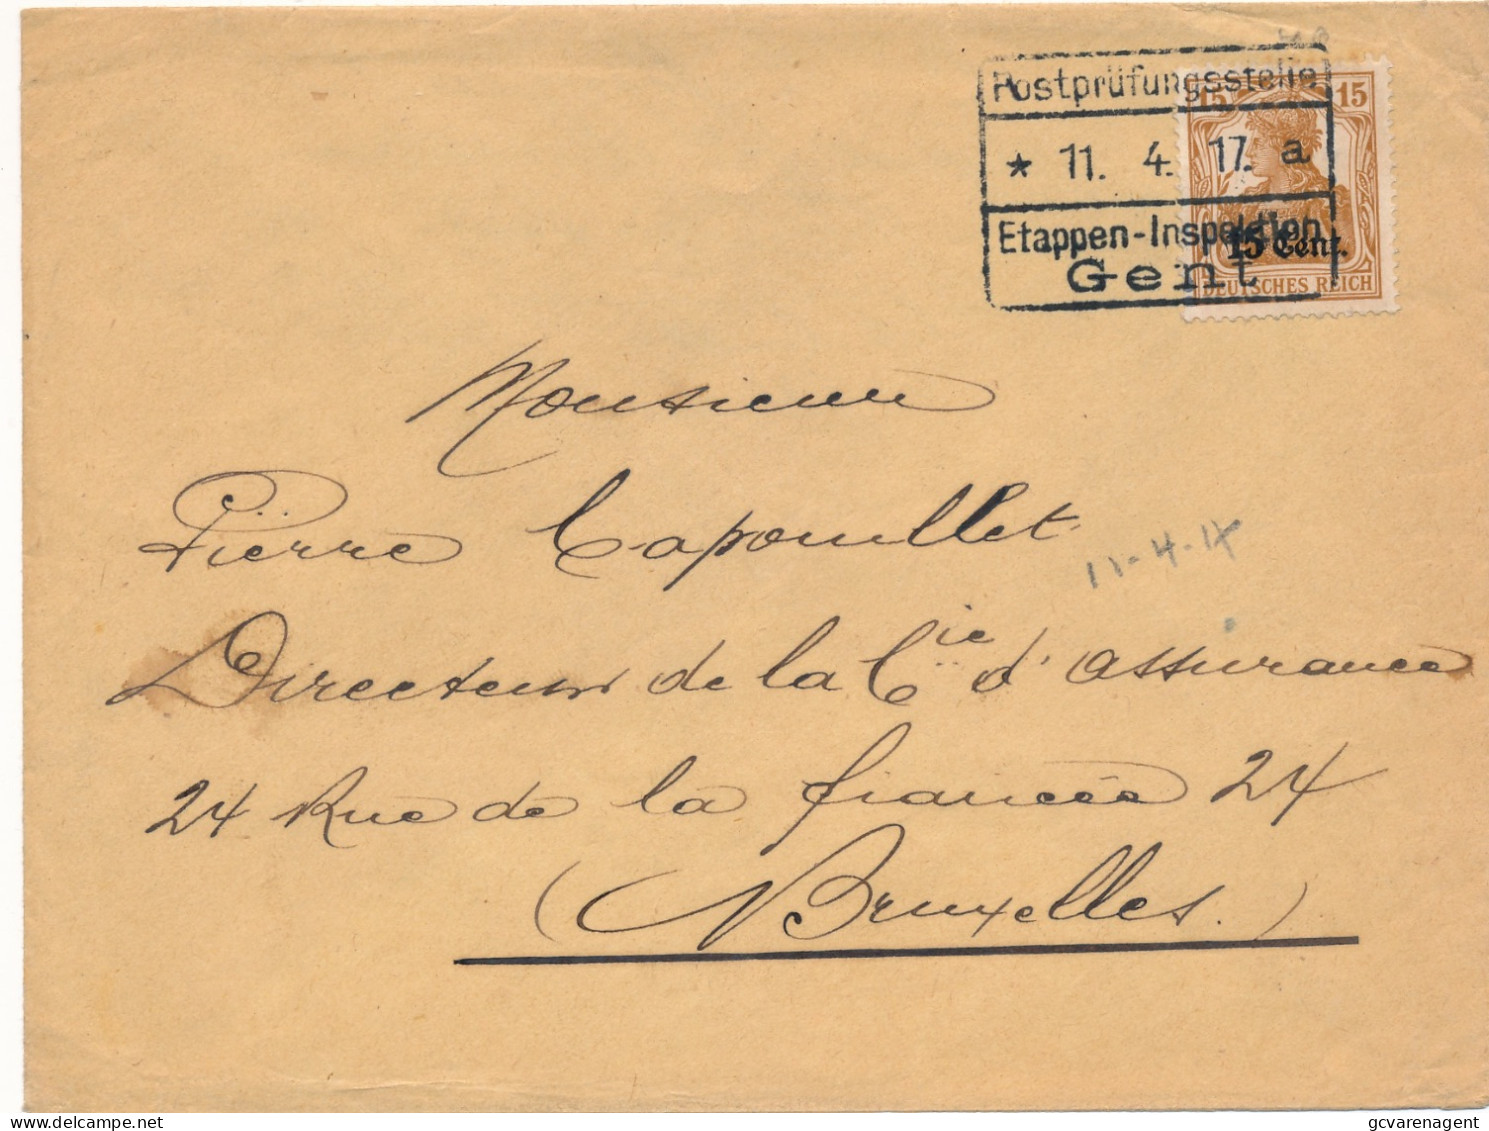 Postprüfungsstelle
15 15
* 11. 4. 17. a
Etappen-Inspektion
15 Cent.
Gent
DEUTSCHES REICH
Monsieur
Pierre Capouillet
11-4-17
Directeur de la Cie d'assurance
24 Rue de la fiancée 24
(Bruxelles.)
delcampe.net
gcvarenagent